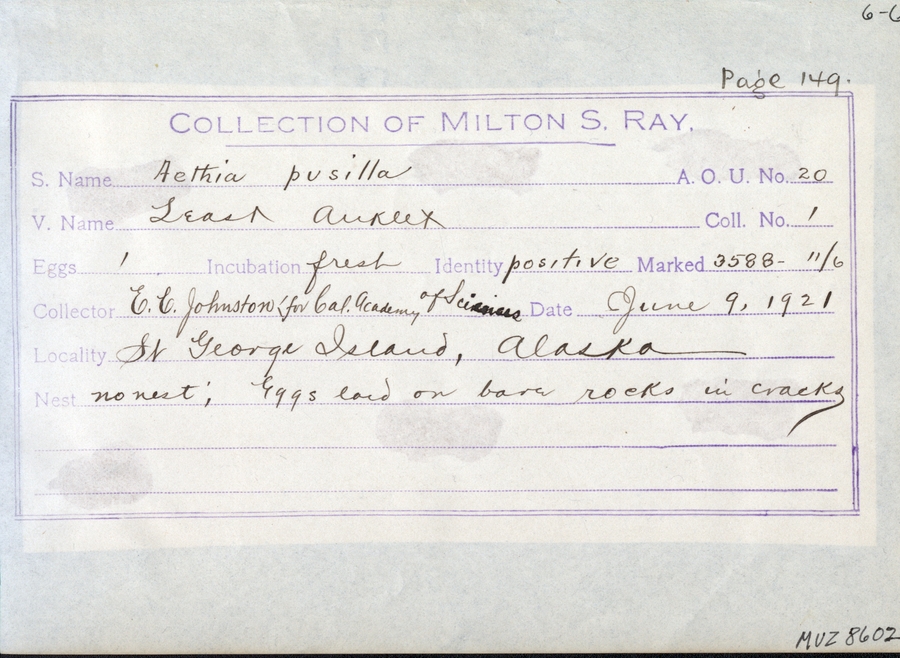 6-6
Page 149.
COLLECTION OF MILTON S. RAY.
S. Name Aethia pusilla A. O. U. No. 20
V. Name Least Auklet Coll. No. 1
Eggs 1 Incubation fresh Identity positive Marked 3588- 11/6
Collector E. C. Johnston for Cal. Academy of Sciences Date June 9, 1921
Locality St George Island, Alaska
Nest no nest; Eggs laid on bare rocks in cracks
MVZ 8602